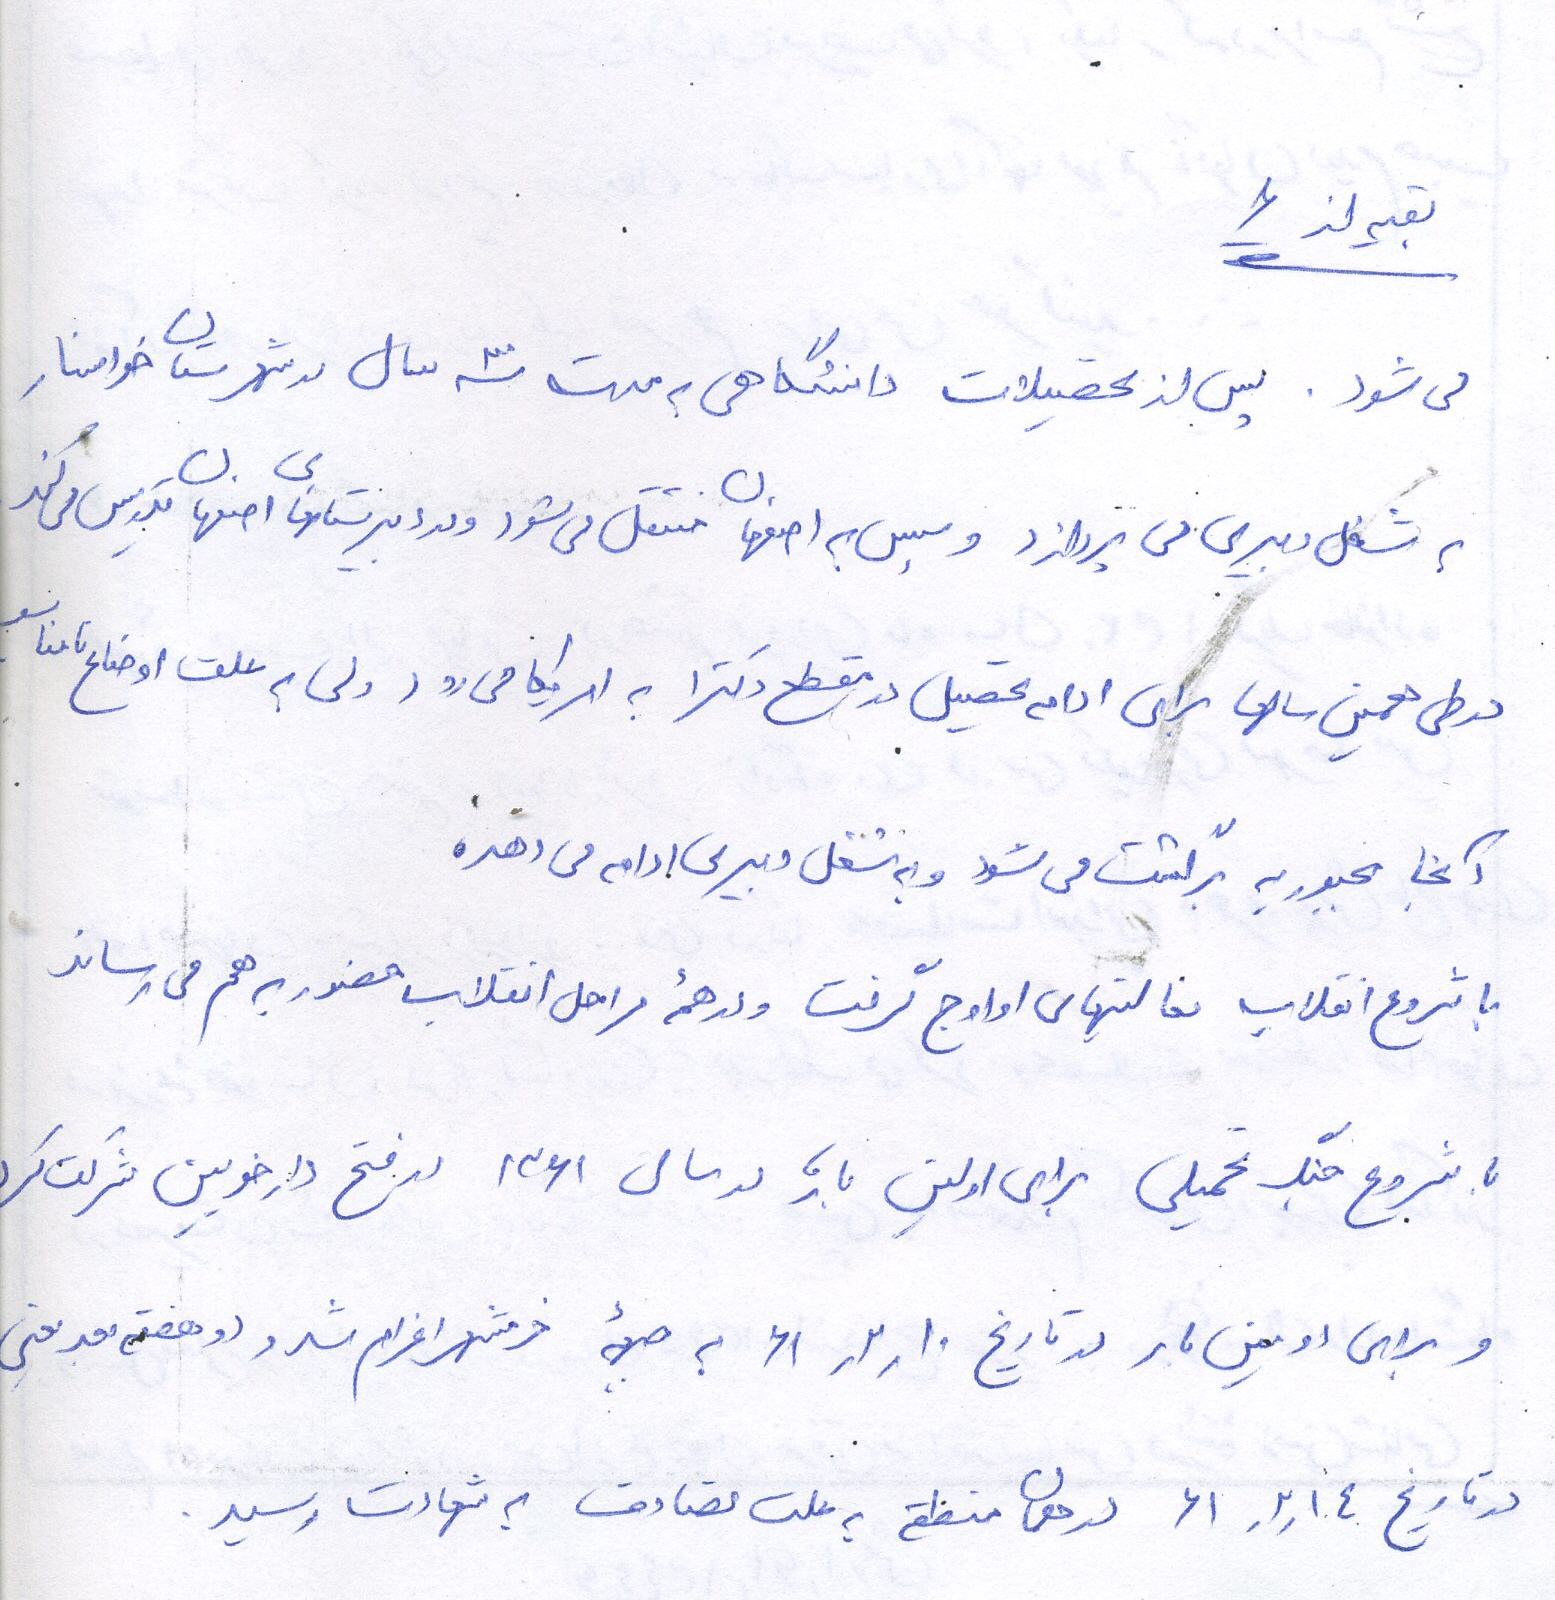 بقیه از ۶
می شود. پس از تحصیلات دانشگاهی به مدت سه سال در شهرستان خوانسار
به شغل دبیری می پردازد و سپس به اصفهان منتقل می شود و در دبیرستانهای اصفهان تدریس می کند
در طی همین سالها برای ادامه تحصیل در مقطع دکترا به امریکا می رود ولی به علت اوضاع نامناسب
آنجا مجبور به برگشت می شود و به شغل دبیری ادامه می دهد.
با شروع انقلاب فعالیتهای او اوج گرفت و در همهٔ مراحل انقلاب حضور به هم می رساند
با شروع جنگ تحمیلی برای اولین بار در سال ۱۳۶۱ در فتح دارخوین شرکت کرد
و برای دومین بار در تاریخ ۱۰ر۲ر۶۱ به جبههٔ خرمشهر اعزام شد و دو هفته بعد یعنی
در تاریخ ۱۴ر۲ر۶۱ در همان منطقه به علت تصادف به شهادت رسید.